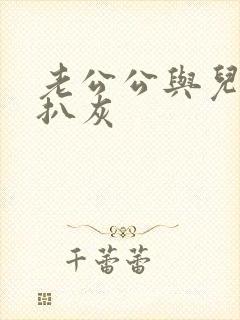 老公公與兒
扒灰
千蕾蕾